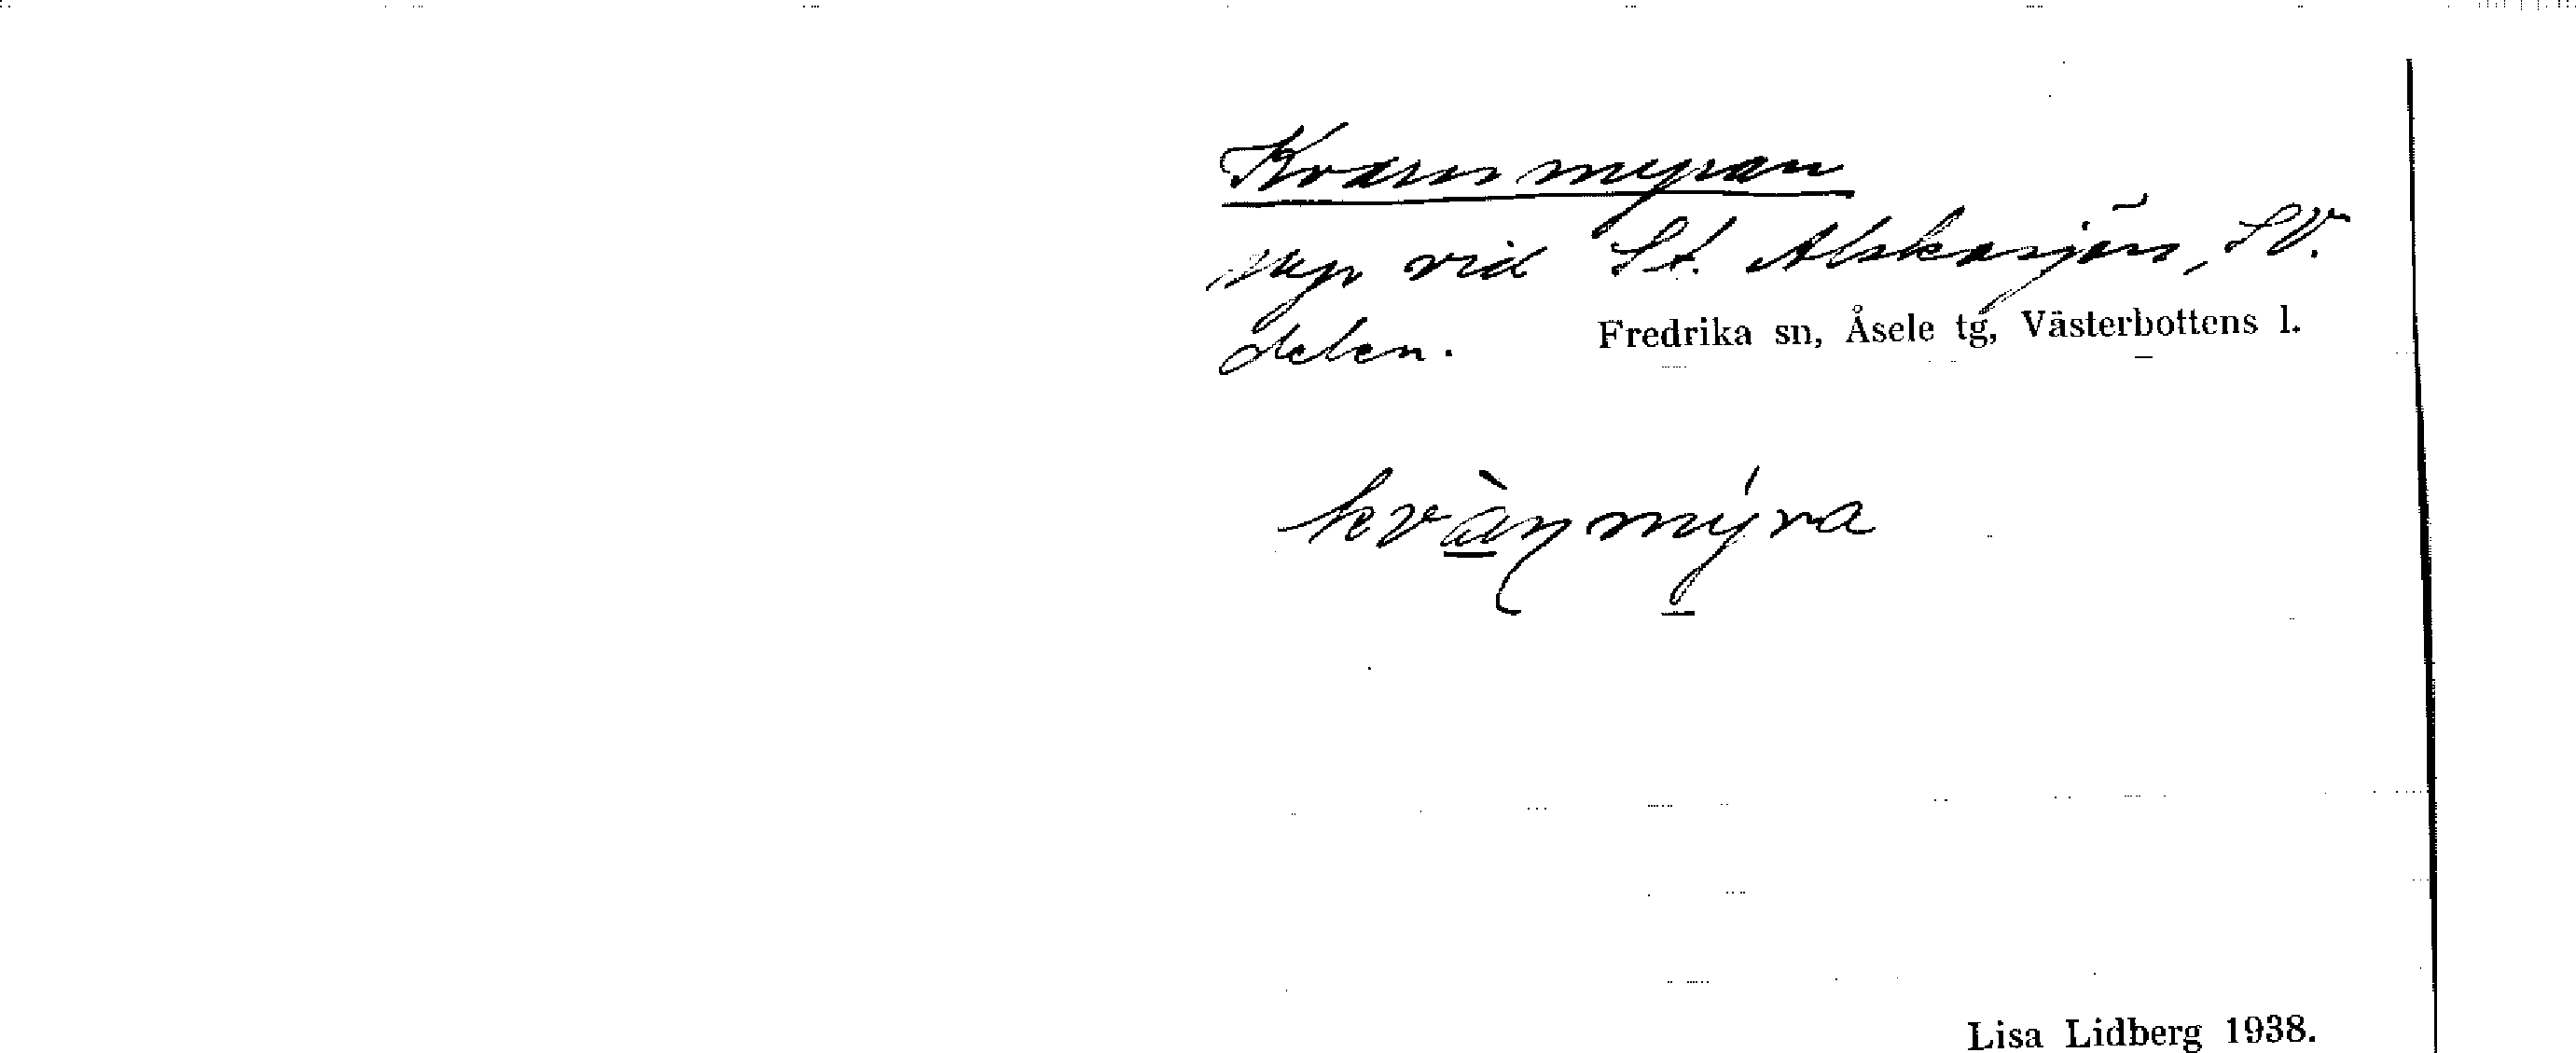 Kvarnmyran
myr vid St. Alskasjön, SV.
delen.
Fredrika sn, Åsele tg, Västerbottens l.
kvàn̩mýra
Lisa Lidberg 1938.